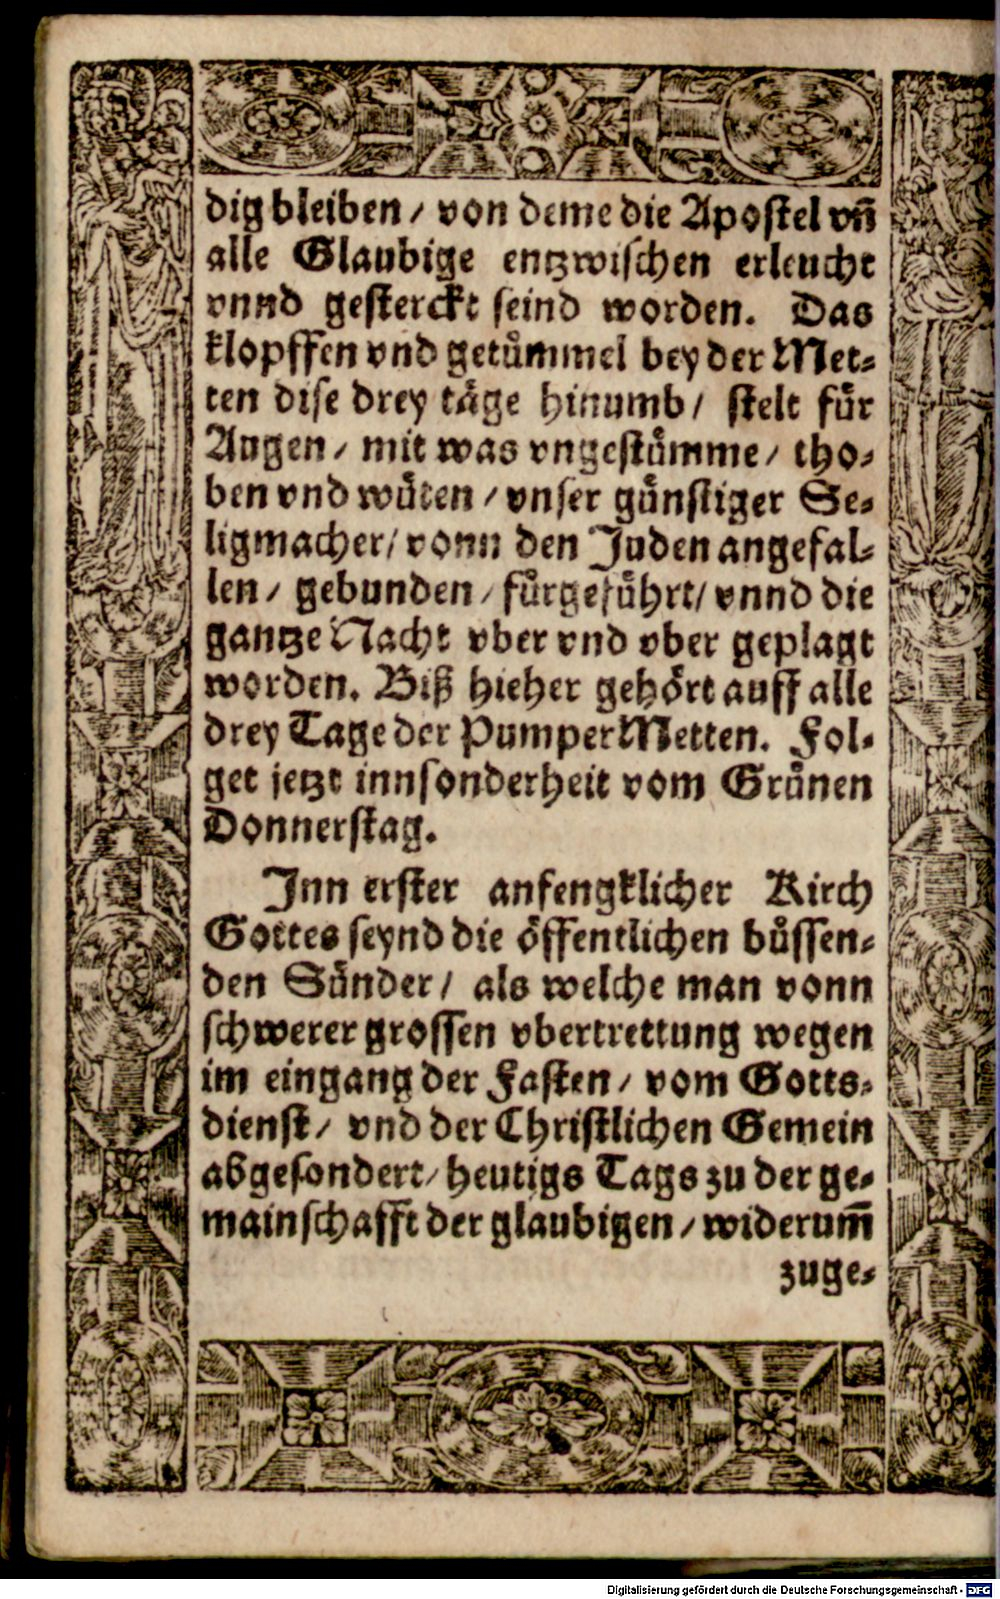 dig bleiben / von deme die Apostel vñ
alle Glaubige entzwischen erleucht
vnnd gesterckt seind worden. Das
klopffen vnd getuͤmmel bey der Met⸗
ten dise drey taͤge hinumb / stelt fuͤr
Augen / mit was vngestuͤmme / tho⸗
ben vnd wuͤten / vnser guͤnstiger Se⸗
ligmacher / vonn den Juden angefal⸗
len / gebunden / fuͤrgefuͤhrt / vnnd die
gantze Nacht vber vnd vber geplagt
worden. Biß hieher gehoͤrt auff alle
drey Tage der PumperMetten. Fol⸗
get jetzt innsonderheit vom Gruͤnen
Donnerstag.
Jnn erster anfengklicher Kirch
Gottes seynd die oͤffentlichen buͤssen⸗
den Suͤnder / als welche man vonn
schwerer grossen vbertrettung wegen
im eingang der Fasten / vom Gotts⸗
dienst / vnd der Christlichen Gemein
abgesondert / heutigs Tags zu der ge⸗
mainschafft der glaubigen / widerum̃
zuge⸗
Digitalisierung gefördert durch die Deutsche Forschungsgemeinschaft - DFG